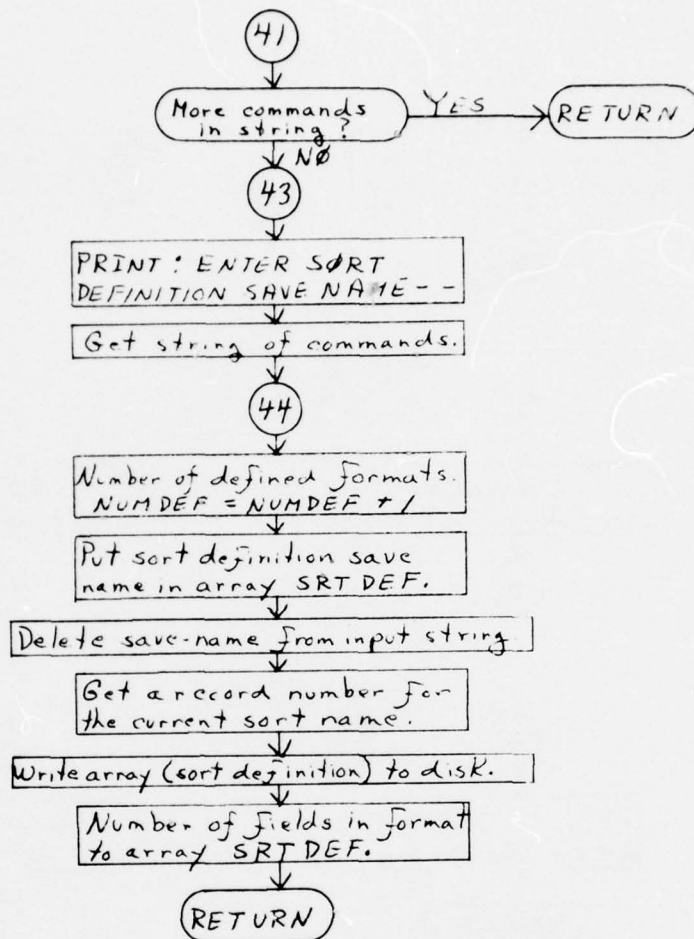 41
More commands
in string?
YES
RETURN
NØ
43
PRINT: ENTER SØRT
DEFINITION SAVE NAME--
Get string of commands.
44
Number of defined formats.
NUMDEF = NUMDEF + 1
Put sort definition save
name in array SRTDEF.
Delete save-name from input string
Get a record number for
the current sort name.
Write array (sort definition) to disk.
Number of fields in format
to array SRTDEF.
RETURN